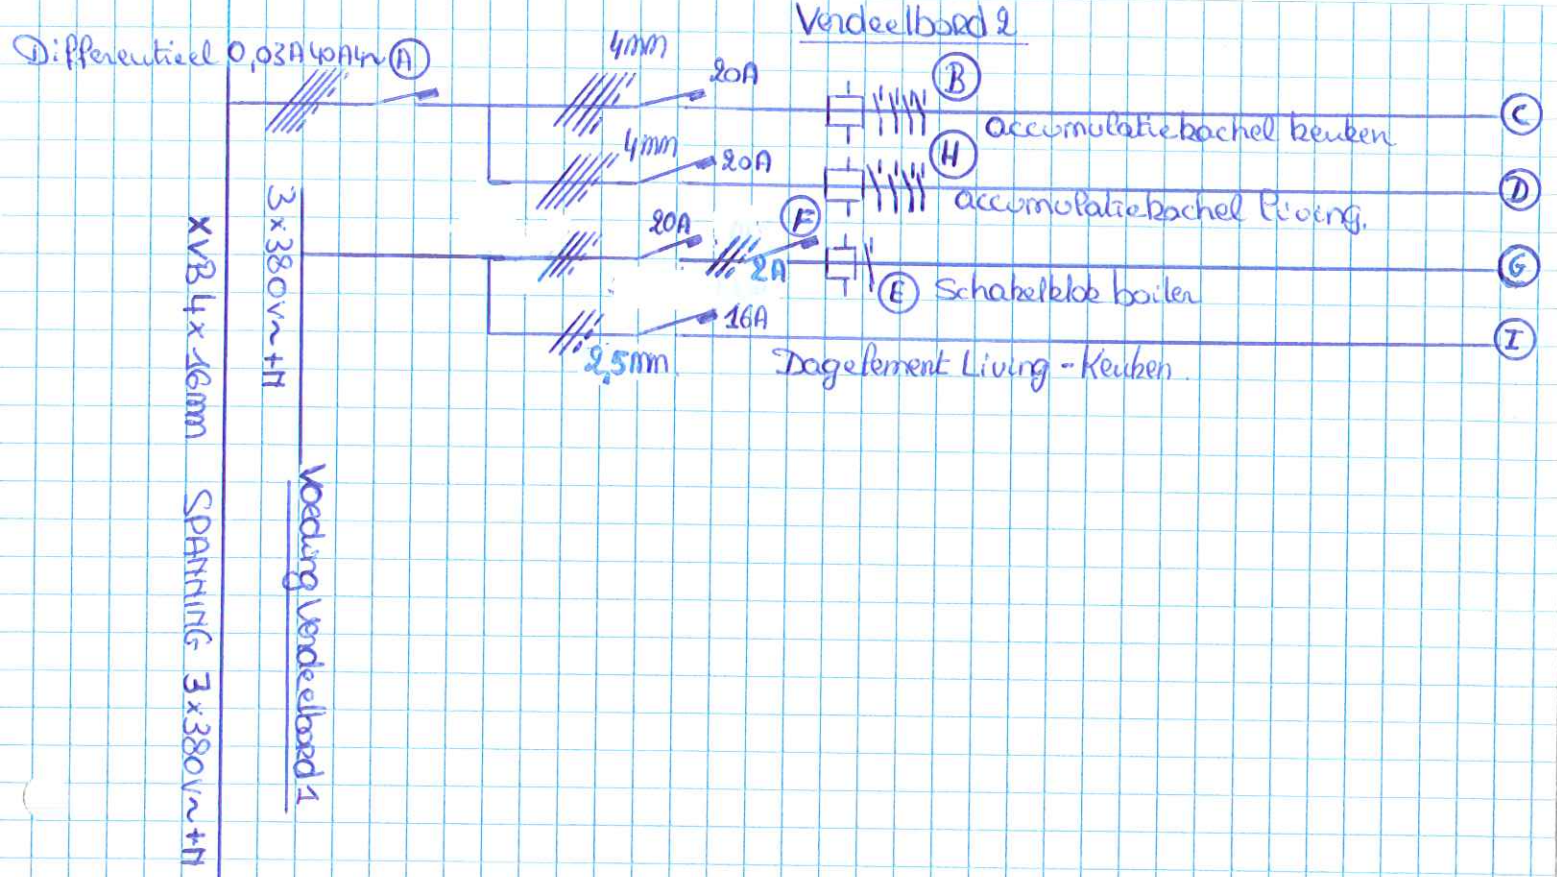 Verdeelbord 2
Differentieel 0,03A 40A 4~ A
4mm
20A
B
accumulatiekachel keuken
C
4mm
20A
H
accumulatiekachel living.
D
20A
F
2A
E
Schakelklok boiler
G
16A
2,5mm
Dagelement Living - Keuken.
I
3x380V~+N
Voeding Verdeelbord 1
XVB 4x16mm SPANNING 3x380V~+N